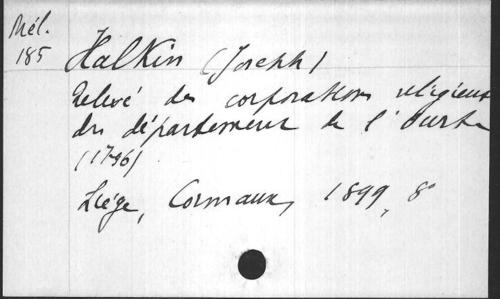 Mél.
185
Halkin (Joseph)
Relevé des corporations religieuses
du département de l'Ourthe
(1796)
Liége, Cormaux, 1899, 8°